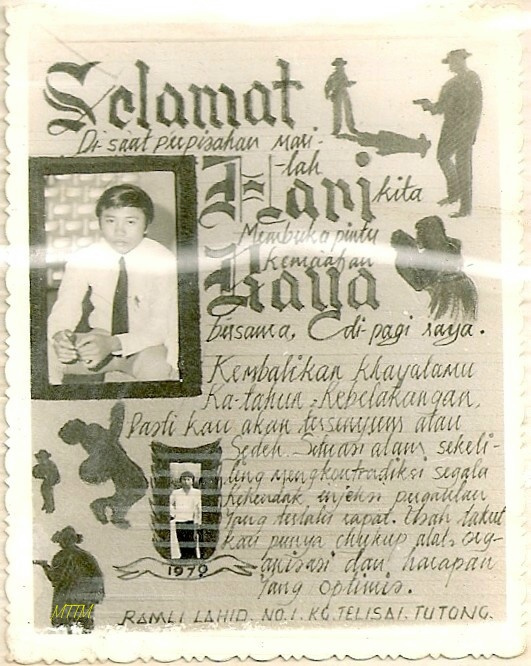 Selamat
Di saat perpisahan mari-
lah
Hari kita
Membuka pintu
kemaafan
Raya
bersama, di pagi raya.
Kembalikan khayalamu
Ka-tahun-kebelakangan,
Pasti kau akan tersenyum atau
Sedeh. Situasi alam sekeli-
ling mengkontradiksi segala
kehendak
yang terlalu rapat. Usah takut
kau punya chukup alat, org-
anisasi dan harapan
yang optimis.
1979
MTTM
RAMLI LAHID. NO.1. KG. TELISAI. TUTONG.